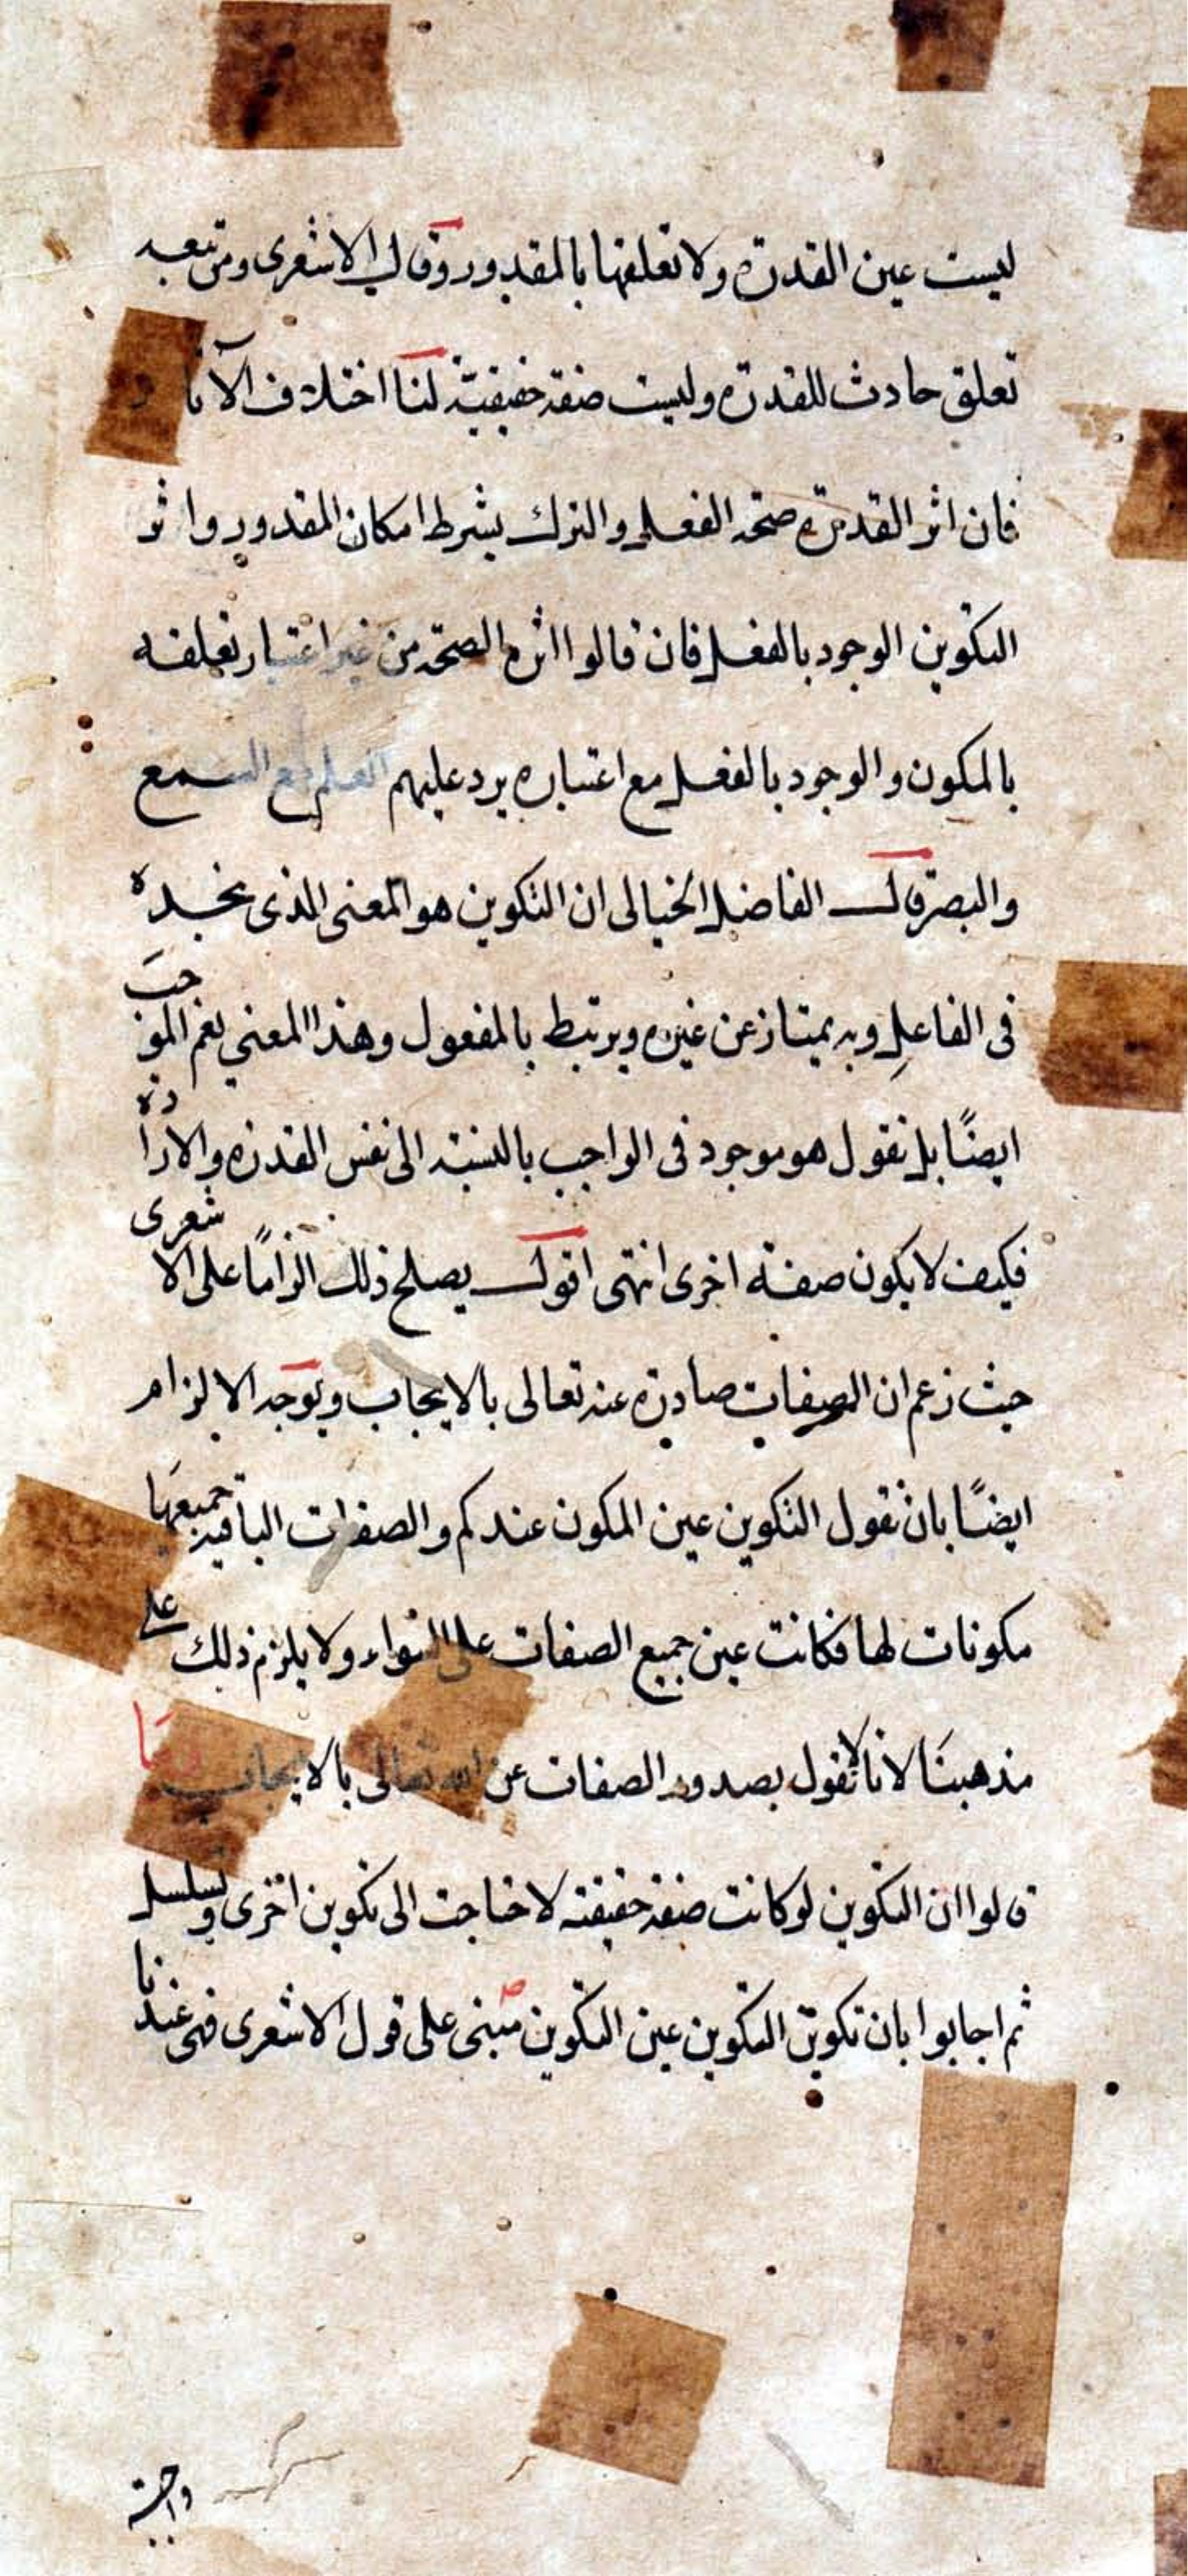 ليست عين القدرة ولا تعلقها بالمقدور وقال الاشعرى ومن تبعه
تعلق حادث للقدرة وليست صفة حقيقية لنا اختلاف الآثار
فان اثر القدرة صحة الفعل والترك بشرط امكان المقدور واثر
التكوين الوجود بالفعل فان قالوا اثره الصحة من غير اعتبار تعلقه
بالمكون والوجود بالفعل مع اعتباره يرد عليهم العلم مع السمع
والبصر قال الفاضل الخيالى ان التكوين هو المعنى الذى نجده
فى الفاعل وبه يمتاز عن غيره ويرتبط بالمفعول وهذا المعنى يعم الموجب
ايضًا بل نقول هو موجود فى الواجب بالنسبة الى نفس القدرة والارادة
فكيف لا يكون صفة اخرى انتهى اقول يصلح ذلك الزامًا على الاشعرى
حيث زعم ان الصفات صادرة عنه تعالى بالايجاب ويوجه الالزام
ايضًا بان نقول التكوين عين المكون عندكم والصفات الباقية جميعها
مكونات لها فكانت عين جميع الصفات على السواء ولا يلزم ذلك على
مذهبنا لانا لا نقول بصدور الصفات عن الله تعالى بالايجاب
قالوا ان التكوين لو كانت صفة حقيقة لاحتاجت الى تكوين اخرى وتسلسل
ثم اجابوا بان تكوين التكوين عين التكوين مبنى على قول الاشعرى فهى عندنا
واجبة